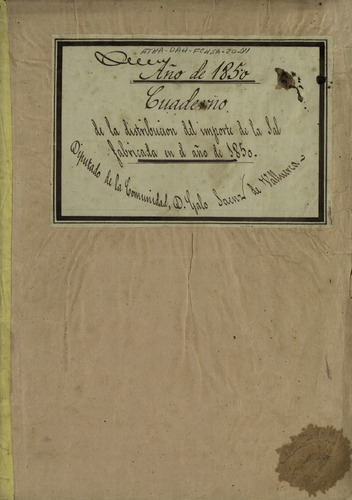 ATHA-DAH-FCHSA-20-01
Año de 1850
Cuaderno
de la distribucion del importe de la Sal
fabricada en el año de 1850.
Diputado de la Comunidad, D. Galo Saenz de Valluerca.